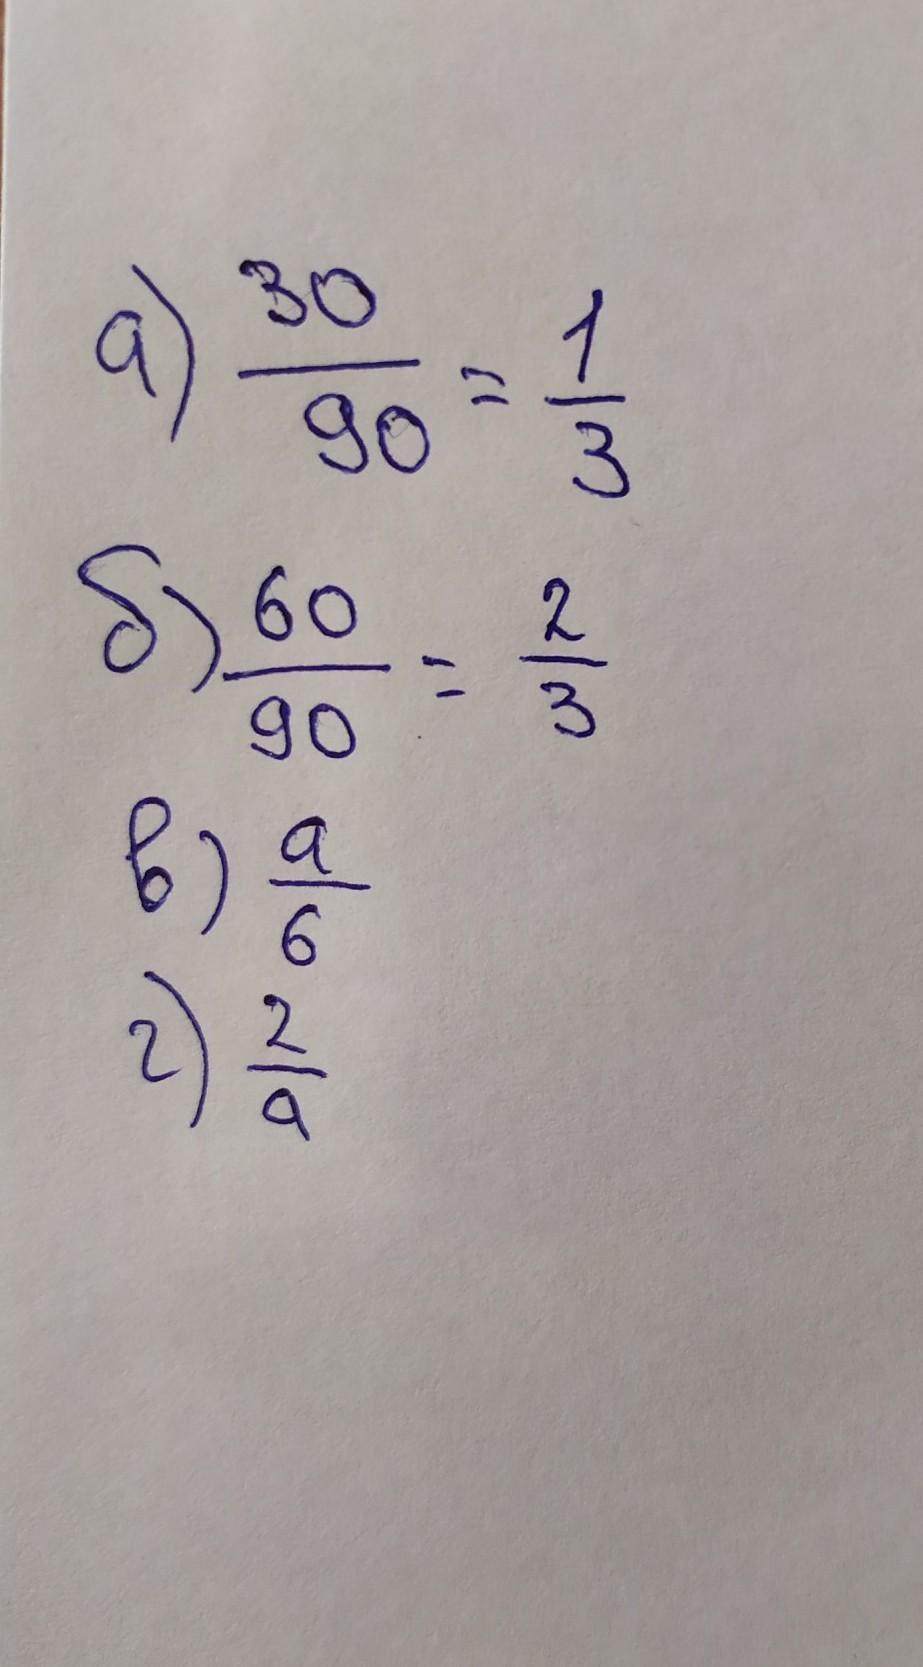 а) 30/90 = 1/3
б) 60/90 = 2/3
в) a/6
г) 2/a